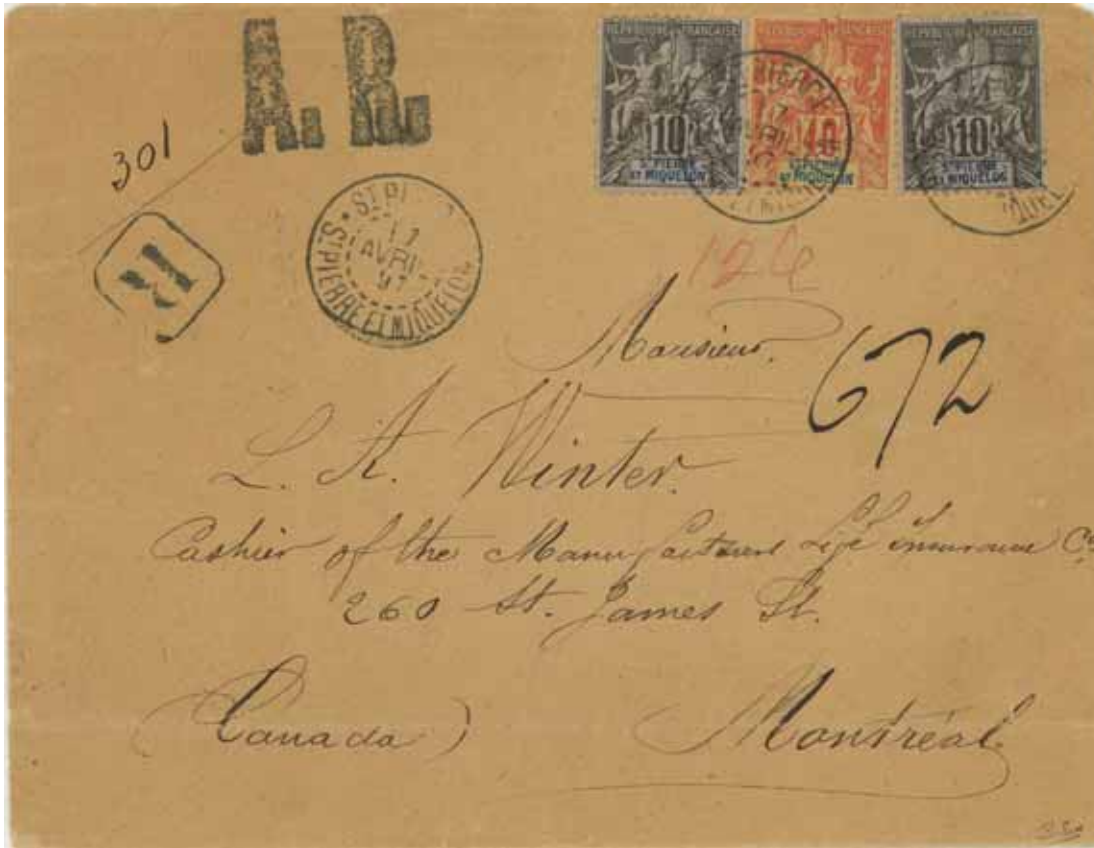 A. R.
301
R
RÉPUBLIQUE FRANÇAISE
10
ST PIERRE
ET MIQUELON
RÉPUBLIQUE FRANÇAISE
40
ST PIERRE
ET MIQUELON
RÉPUBLIQUE FRANÇAISE
10
ST PIERRE
ET MIQUELON
ST PIERRE ET MIQUELON
AVRIL
Monsieur.
672
L. A. Winter.
Cashier of the Manufacturers Life Insurance Co
260 St. James St.
(Canada) Montréal.